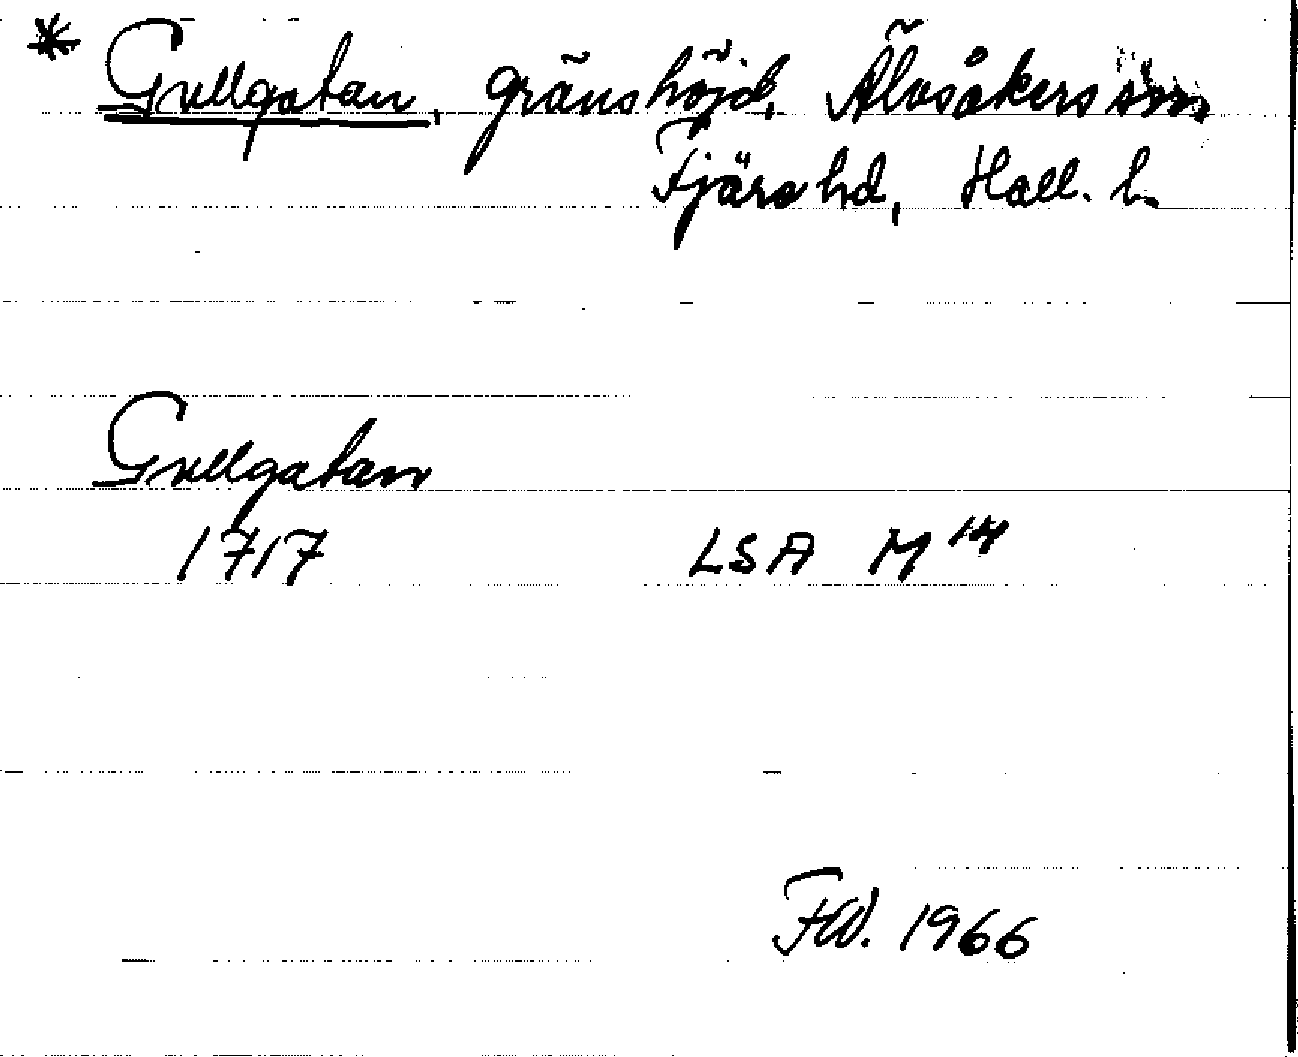 * Gullgatan, gränshöjd, Älvsåkers sn
Fjäre hd, Hall. l.
Gullgatan
1717 LSA M
FW. 1966